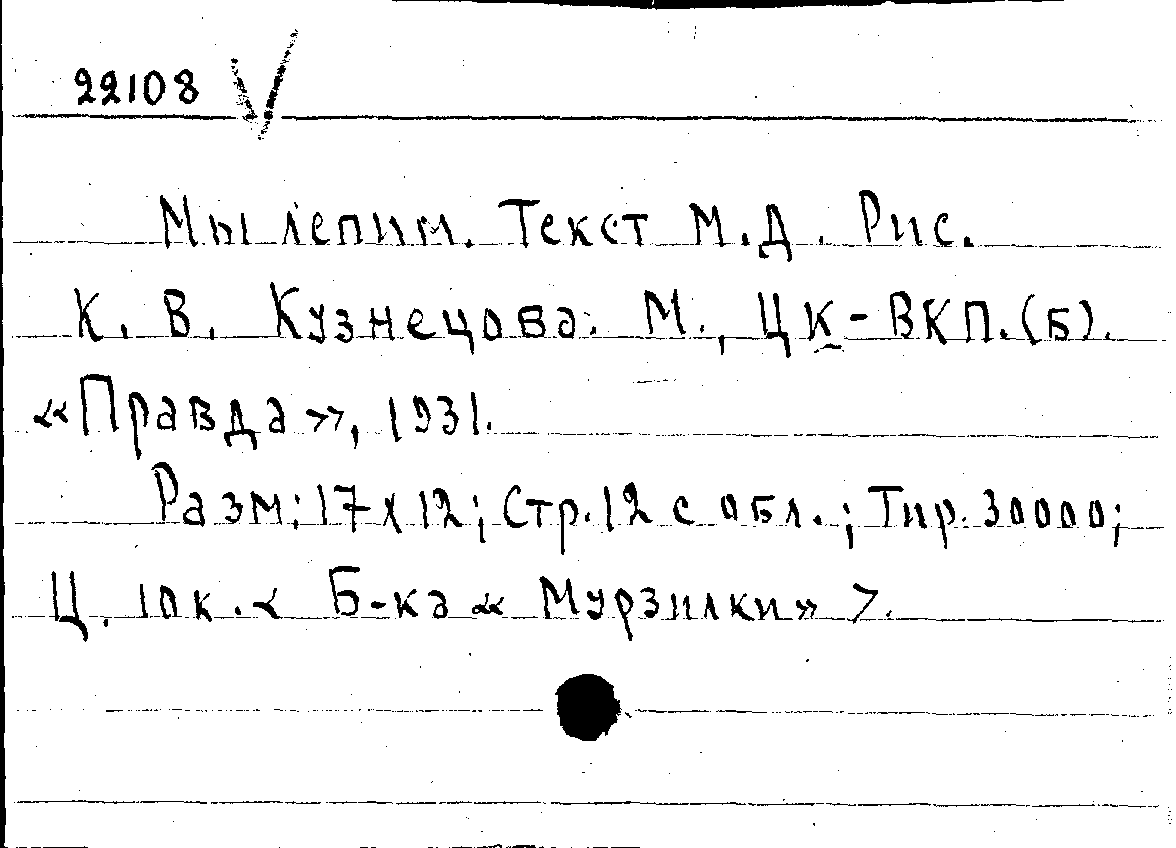 22108 V
Мы лепим. Текст М.Д. Рис.
К. В. Кузнецова. М., ЦК-ВКП.(б).
«Правда», 1931.
Разм: 17х12; Стр. 12 с обл.; Тир. 30000;
Ц. 10к. < Б-ка « Мурзилки» >.